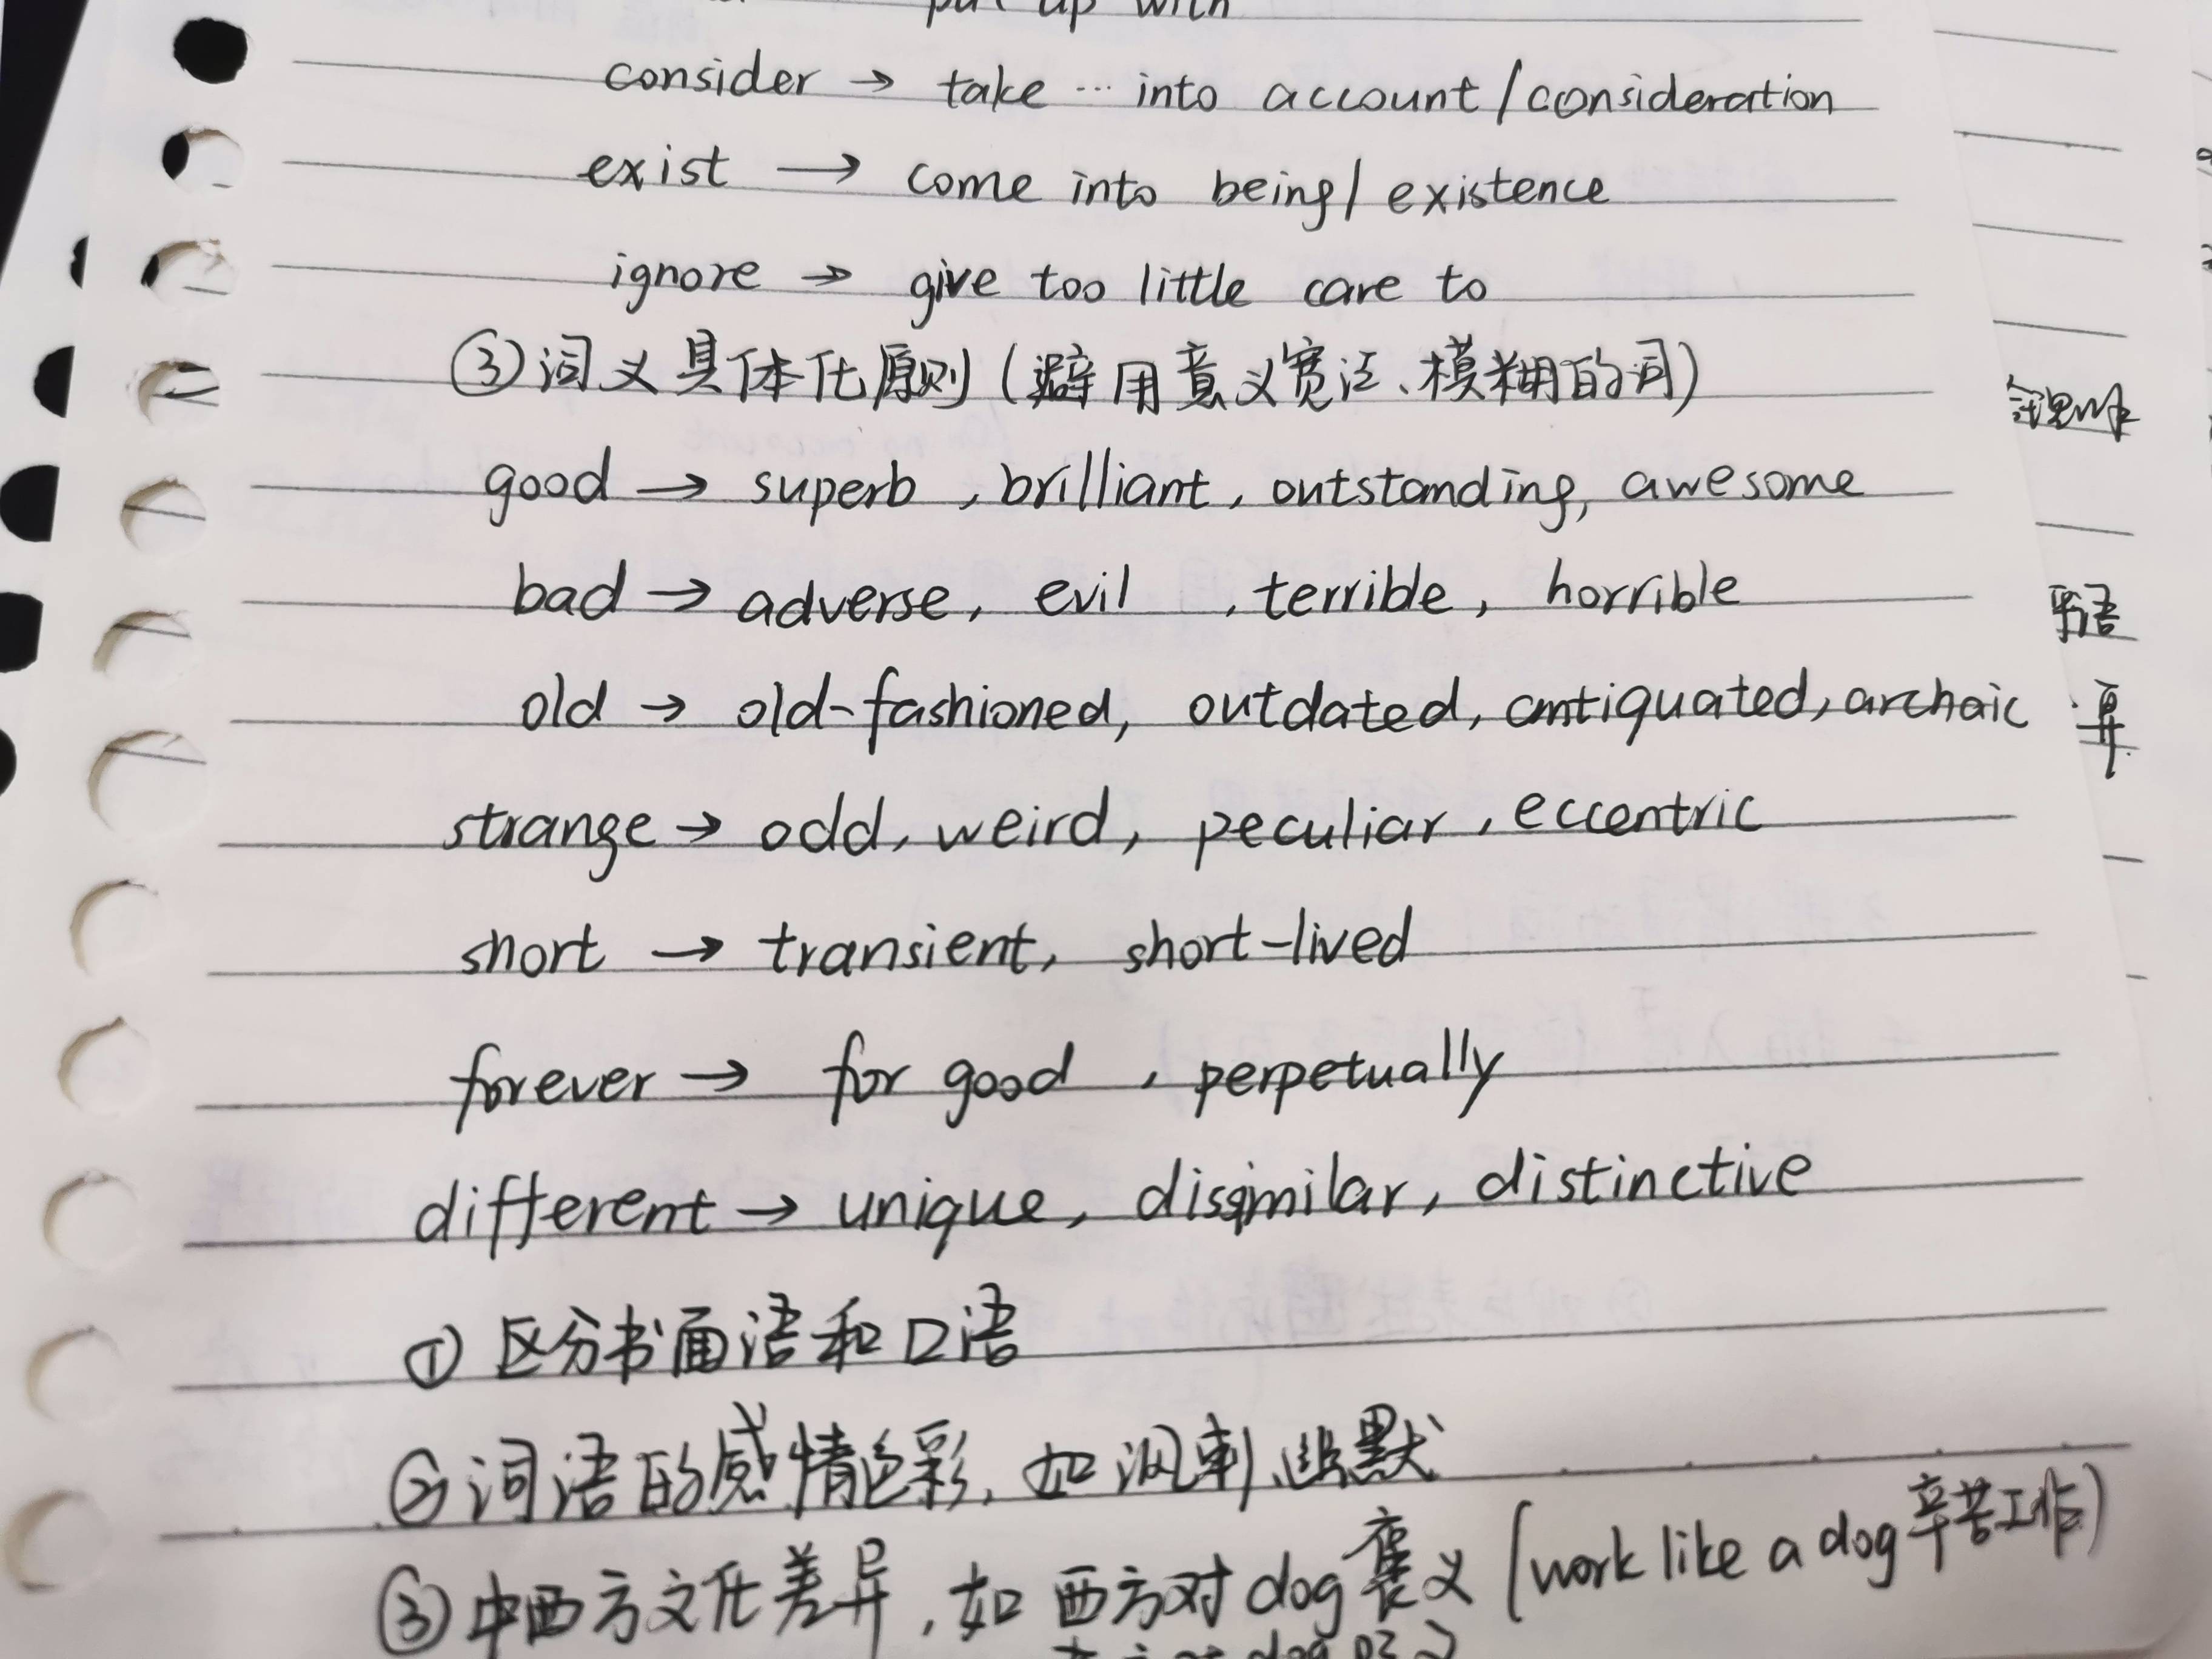 put up with
consider → take … into account/consideration
exist → come into being/existence
ignore → give too little care to
③词义具体化原则(避用意义宽泛、模糊的词)
good → superb, brilliant, outstanding, awesome
bad → adverse, evil, terrible, horrible
old → old-fashioned, outdated, antiquated, archaic
strange → odd, weird, peculiar, eccentric
short → transient, short-lived
forever → for good, perpetually
different → unique, dissimilar, distinctive
①区分书面语和口语
②词语的感情色彩,如讽刺、幽默
③中西方文化差异,如西方对dog褒义(work like a dog辛苦工作)